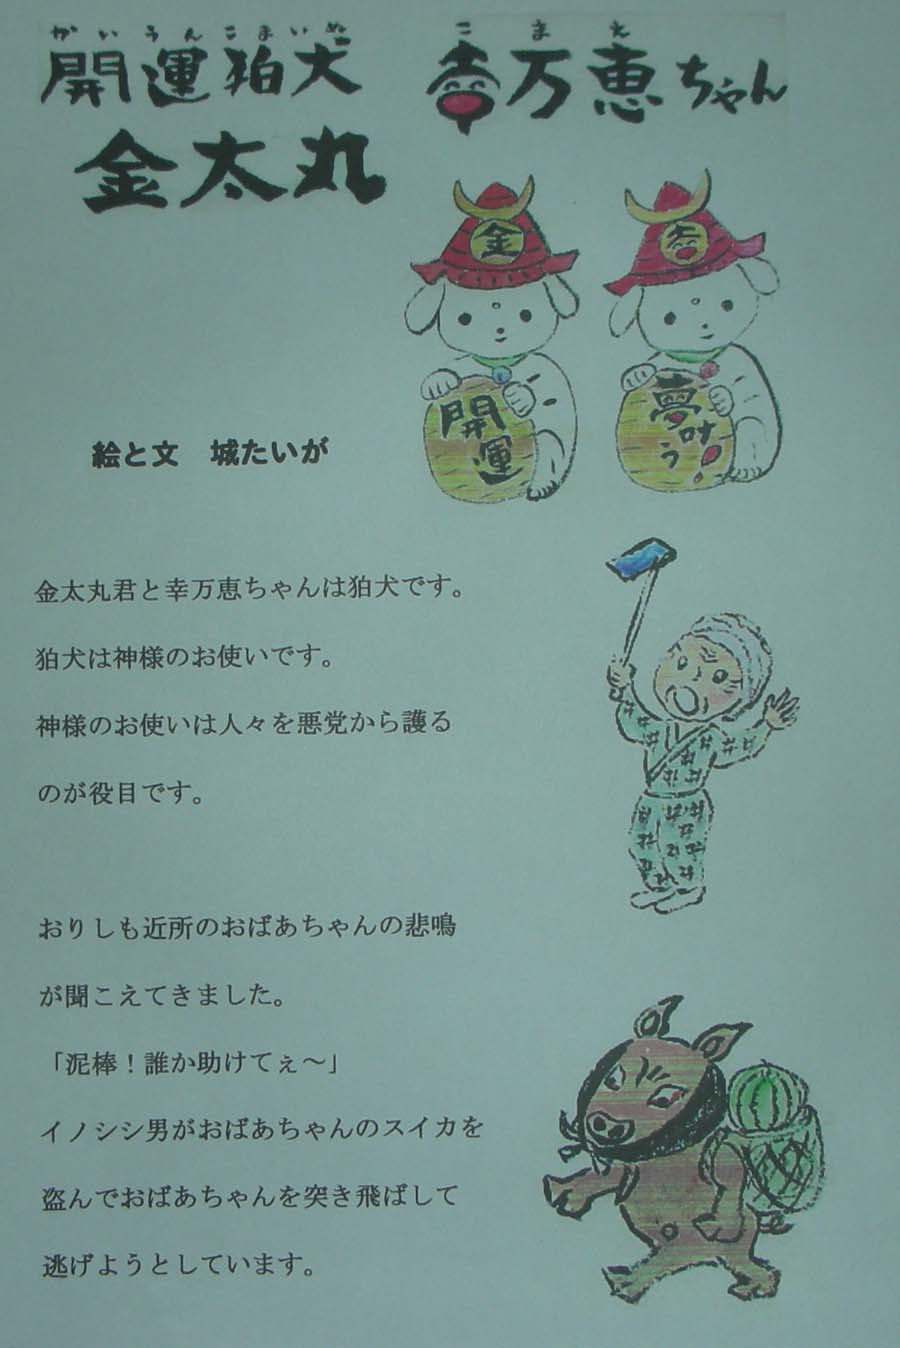 かいうんこまいぬ
開運狛犬
金太丸
こまえ
幸万恵ちゃん
金
開運
夢叶う
絵と文　城たいが
金太丸君と幸万恵ちゃんは狛犬です。
狛犬は神様のお使いです。
神様のお使いは人々を悪党から護る
のが役目です。
おりしも近所のおばあちゃんの悲鳴
が聞こえてきました。
「泥棒！誰か助けてぇ～」
イノシシ男がおばあちゃんのスイカを
盗んでおばあちゃんを突き飛ばして
逃げようとしています。